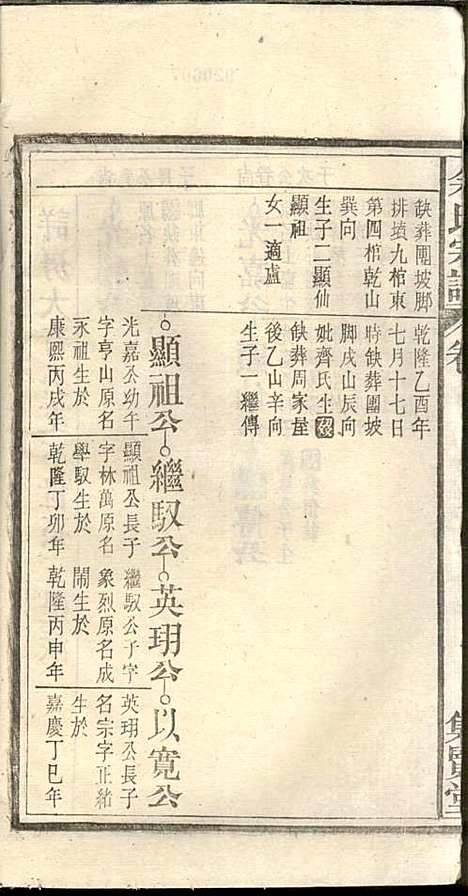 缺葬團坡脚
排墳九棺東
第四棺乾山
巽向
生子二顯仙
顯祖
女一適盧
乾隆乙酉年
七月十七日
時缺葬團坡
脚戌山辰向
妣齊氏生
缺葬周家屋
後乙山辛向
生子一繼傳
顯祖公
光嘉公幼子
字亨山原名
永祖生於
康熙丙戌年
繼馭公
顯祖公長子
字林萬原名
舉馭生於
乾隆丁卯年
英珝公
繼馭公子字
象烈原名成
閙生於
乾隆丙申年
以寬公
英珝公長子
名宗字正緒
生於
嘉慶丁巳年
氏宗譜
卷
集賢堂